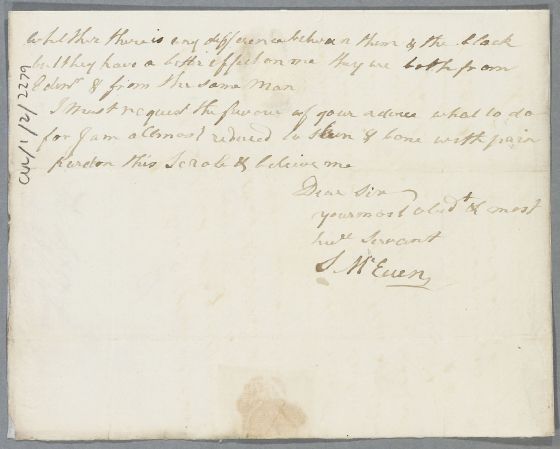 whither there is any difference between them & the black
but they have a better effect on me they are both from
Edinr & from the same Man
I must request the favour of your advice what to do
for I am allmost reduced to skin & bone with pain
pardon this Scrole & believe me
Dear Sir
your most obedt & most
hule Servant
S McEuen
CUL/1/2/2279